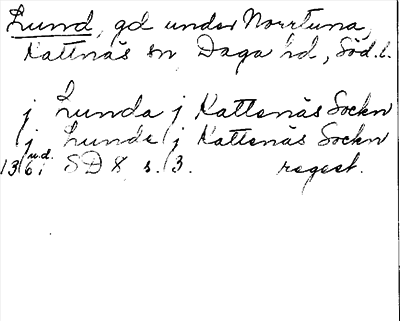 Lund, gd under Norrtuna,
Kattnäs sn, Daga hd, Söd.l.
j Lunda j Kattenäs Sockn
j Lunde j Kattenäs Sockn
u.d.
1361 SD 8 s. 3. regest.